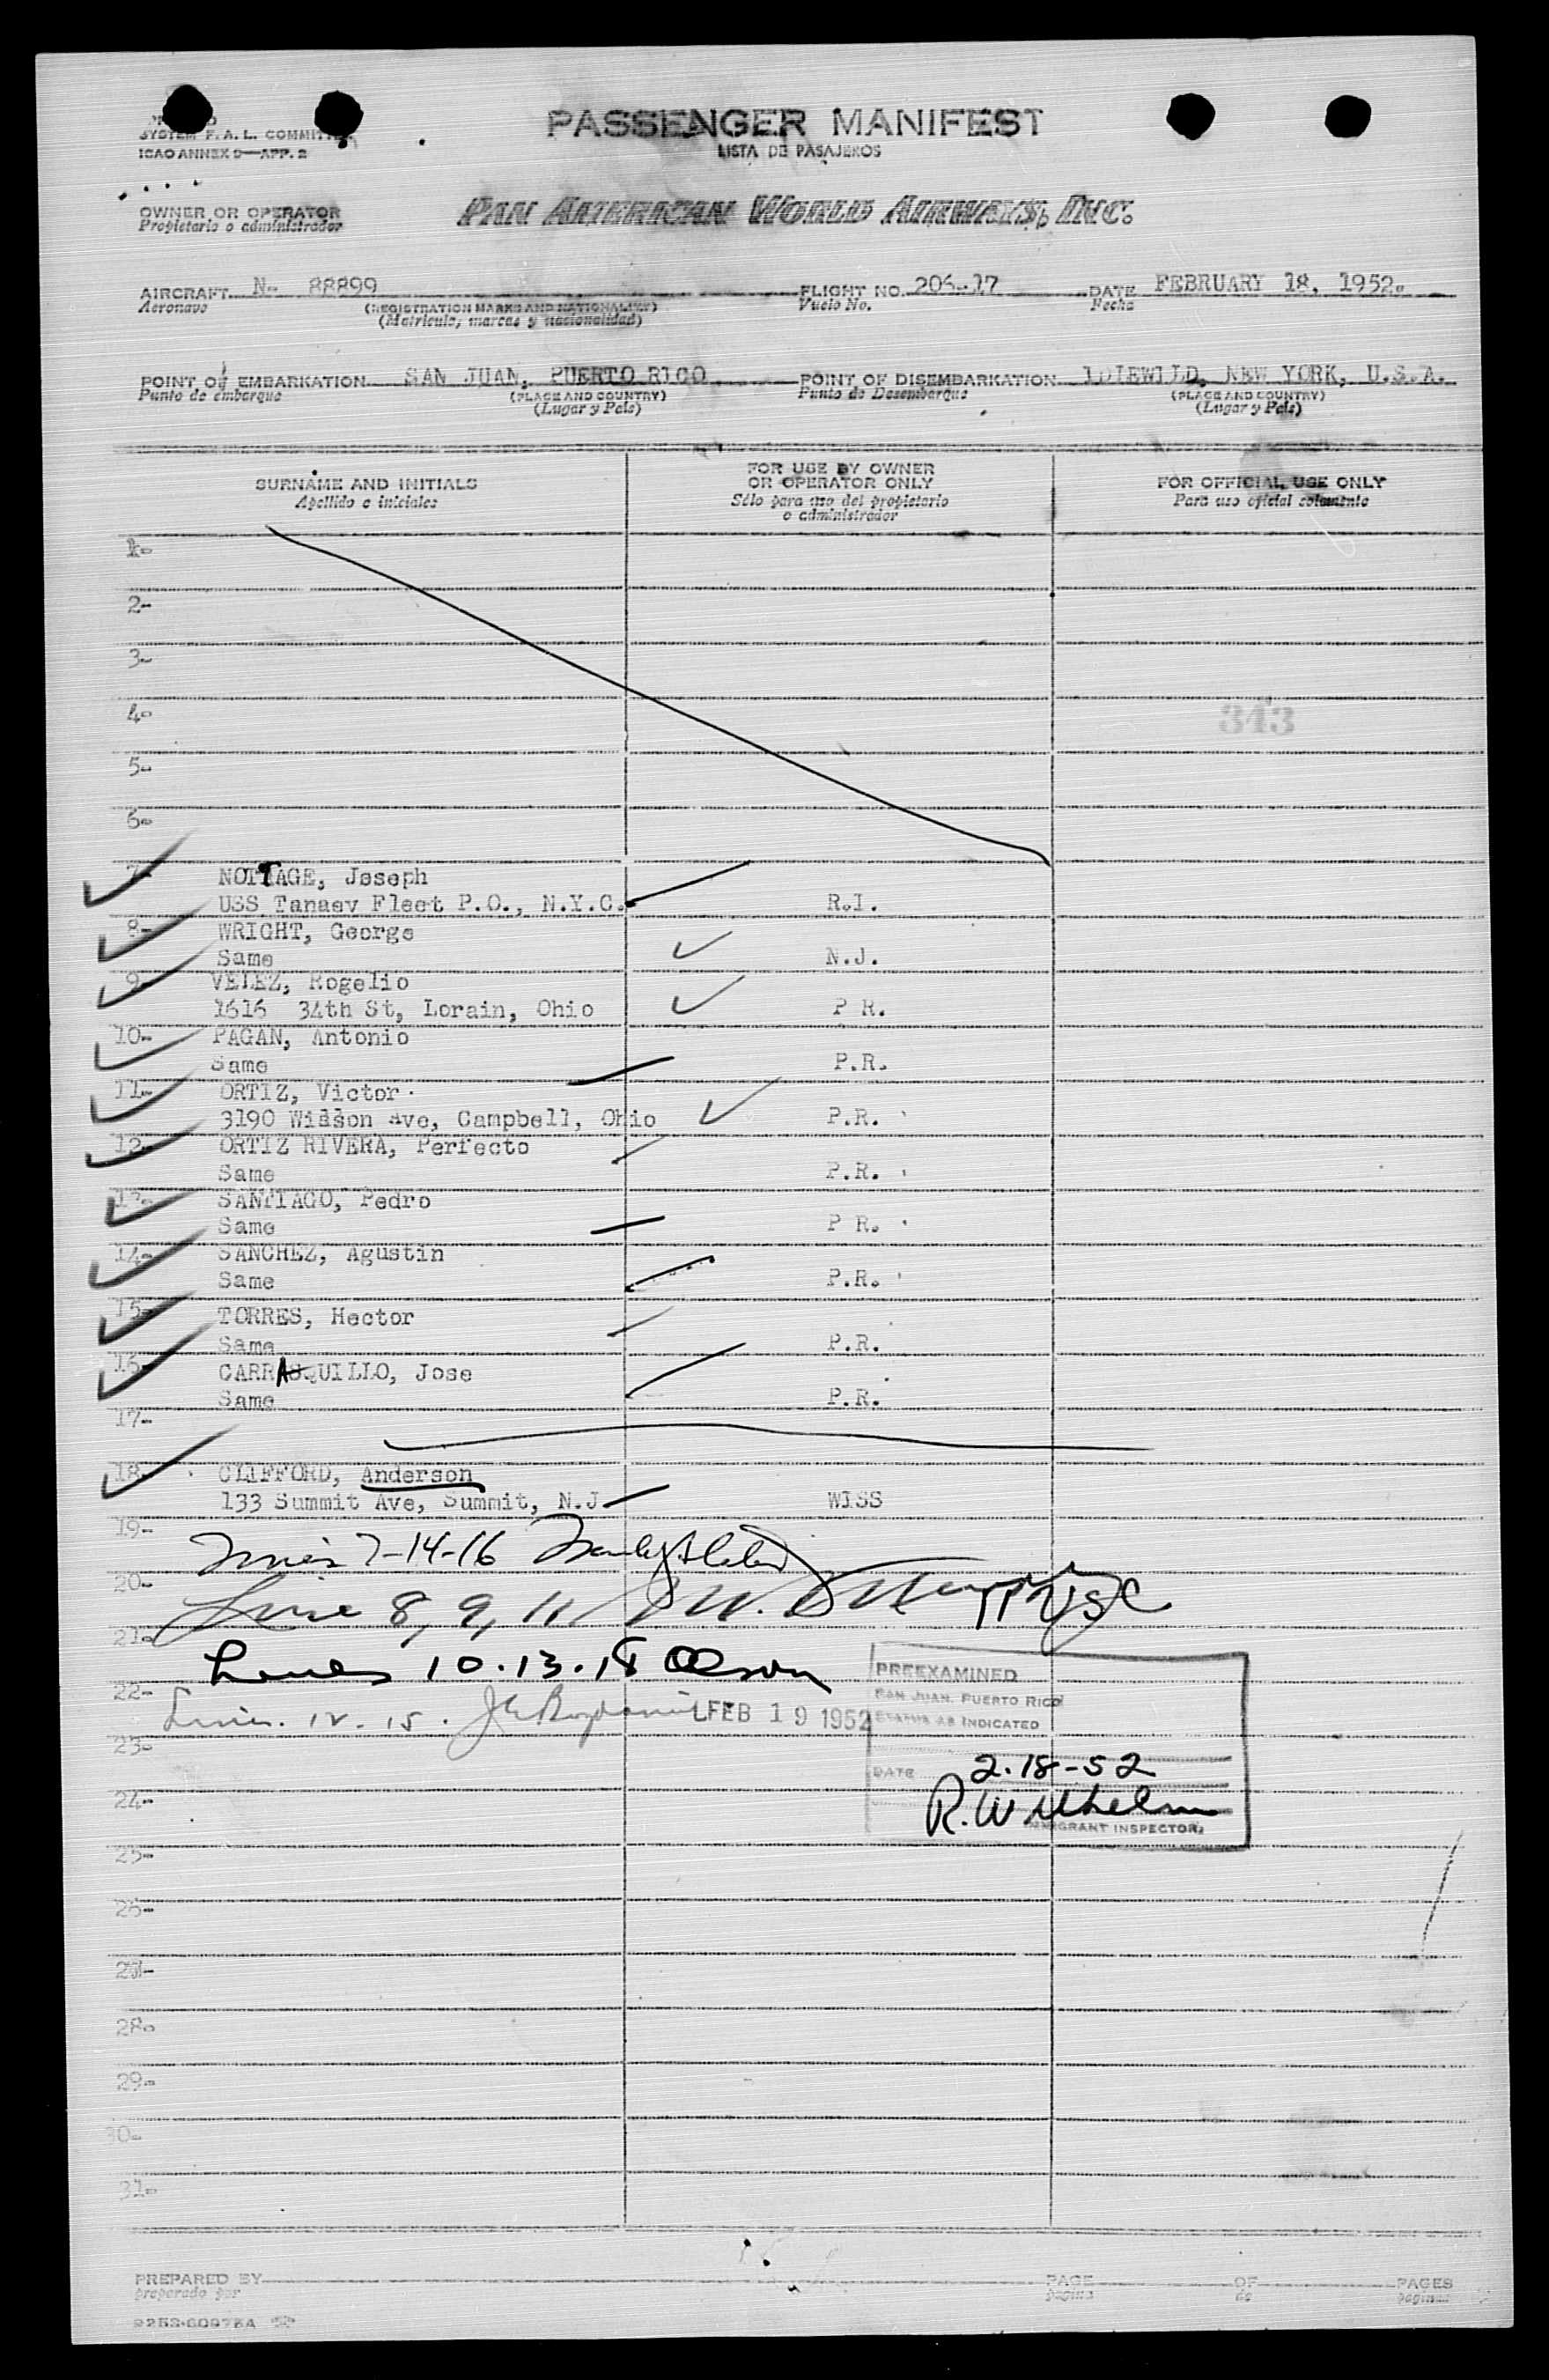 SYSTEM F.A.L. COMMITTEE
ICAO ANNEX 9—APP. 2
PASSENGER MANIFEST
LISTA DE PASAJEROS
OWNER OR OPERATOR
Propietario o administrador
PAN AMERICAN WORLD AIRWAYS, INC.
AIRCRAFT N- 88899 FLIGHT NO. 206-17 DATE FEBRUARY 18, 1952.
Aeronave (REGISTRATION MARKS AND NATIONALITY) Vuelo No. Fecha
(Matricula, marcas y nacionalidad)
POINT OF EMBARKATION SAN JUAN, PUERTO RICO POINT OF DISEMBARKATION IDIEWILD, NEW YORK, U.S.A.
Punto de embarque (PLACE AND COUNTRY) Punto de Desembarque (PLACE AND COUNTRY)
(Lugar y País) (Lugar y País)
SURNAME AND INITIALS FOR USE BY OWNER OR OPERATOR ONLY FOR OFFICIAL USE ONLY
Apellido e iniciales Sólo para uso del propietario o administrador Para uso oficial solamente
1-
2-
3-
4- 343
5-
6-
7- NOTTAGE, Joseph
USS Tanaev Fleet P.O., N.Y.C. R.I.
8- WRIGHT, George
Same N.J.
9- VELEZ, Rogelio
1616 34th St, Lorain, Ohio P R.
10- PAGAN, Antonio
Same P.R.
11- ORTIZ, Victor
3190 Wilson Ave, Campbell, Ohio P.R.
12- ORTIZ RIVERA, Perfecto
Same P.R.
13- SANTIAGO, Pedro
Same P R.
14- SANCHEZ, Agustin
Same P.R.
15- TORRES, Hector
Same P.R.
16- CARRASQUILLO, Jose
Same P.R.
17-
18- CLIFFORD, Anderson
133 Summit Ave, Summit, N.J. WISS
19-
Lines 7-14-16
20-
Line 8, 9, 11 W. Murphy
21-
Lines 10.13.18 Olson
PREEXAMINED
22-
SAN JUAN, PUERTO RICO
Lines. 12. 15. FEB 19 1952
STATUS AS INDICATED
23-
DATE 2-18-52
24-
R. Wilhelm
IMMIGRANT INSPECTOR
25-
26-
27-
28-
29-
30-
31-
PREPARED BY PAGE OF PAGES
preparado por pagina de paginas